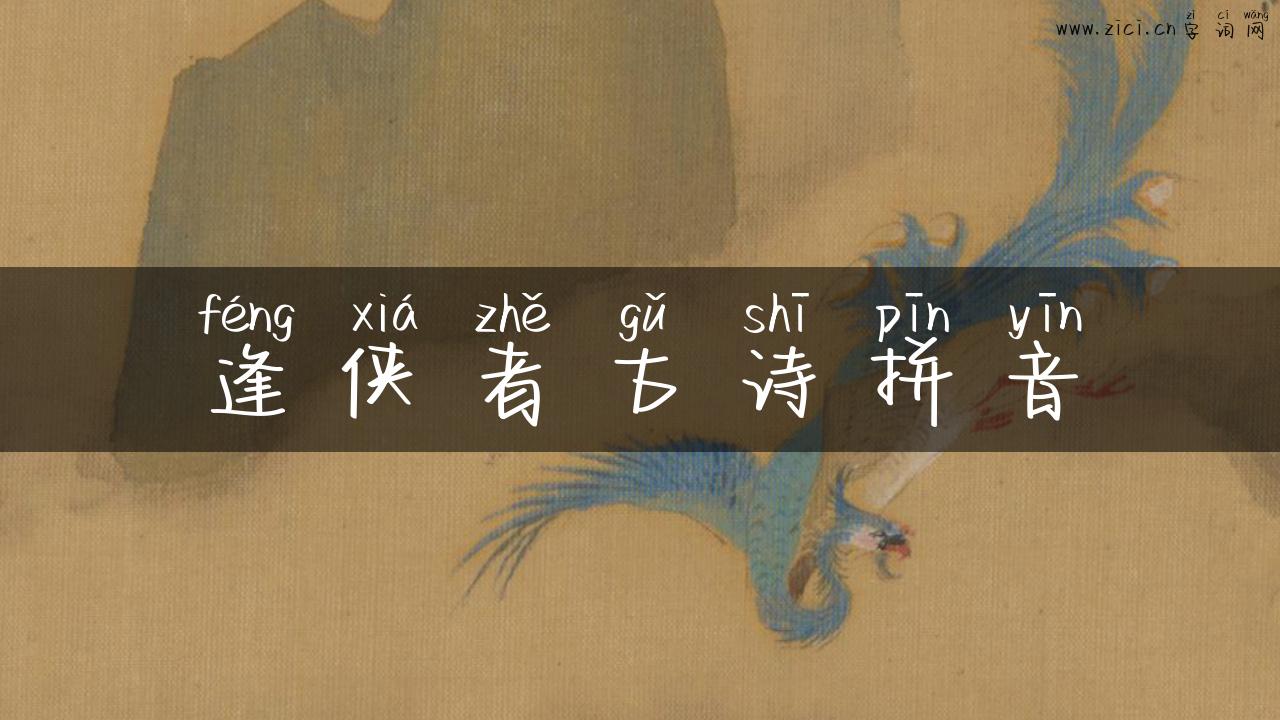 zì cí wǎng
www.zici.cn 字 词 网
féng xiá zhě gǔ shī pīn yīn
逢 侠 者 古 诗 拼 音